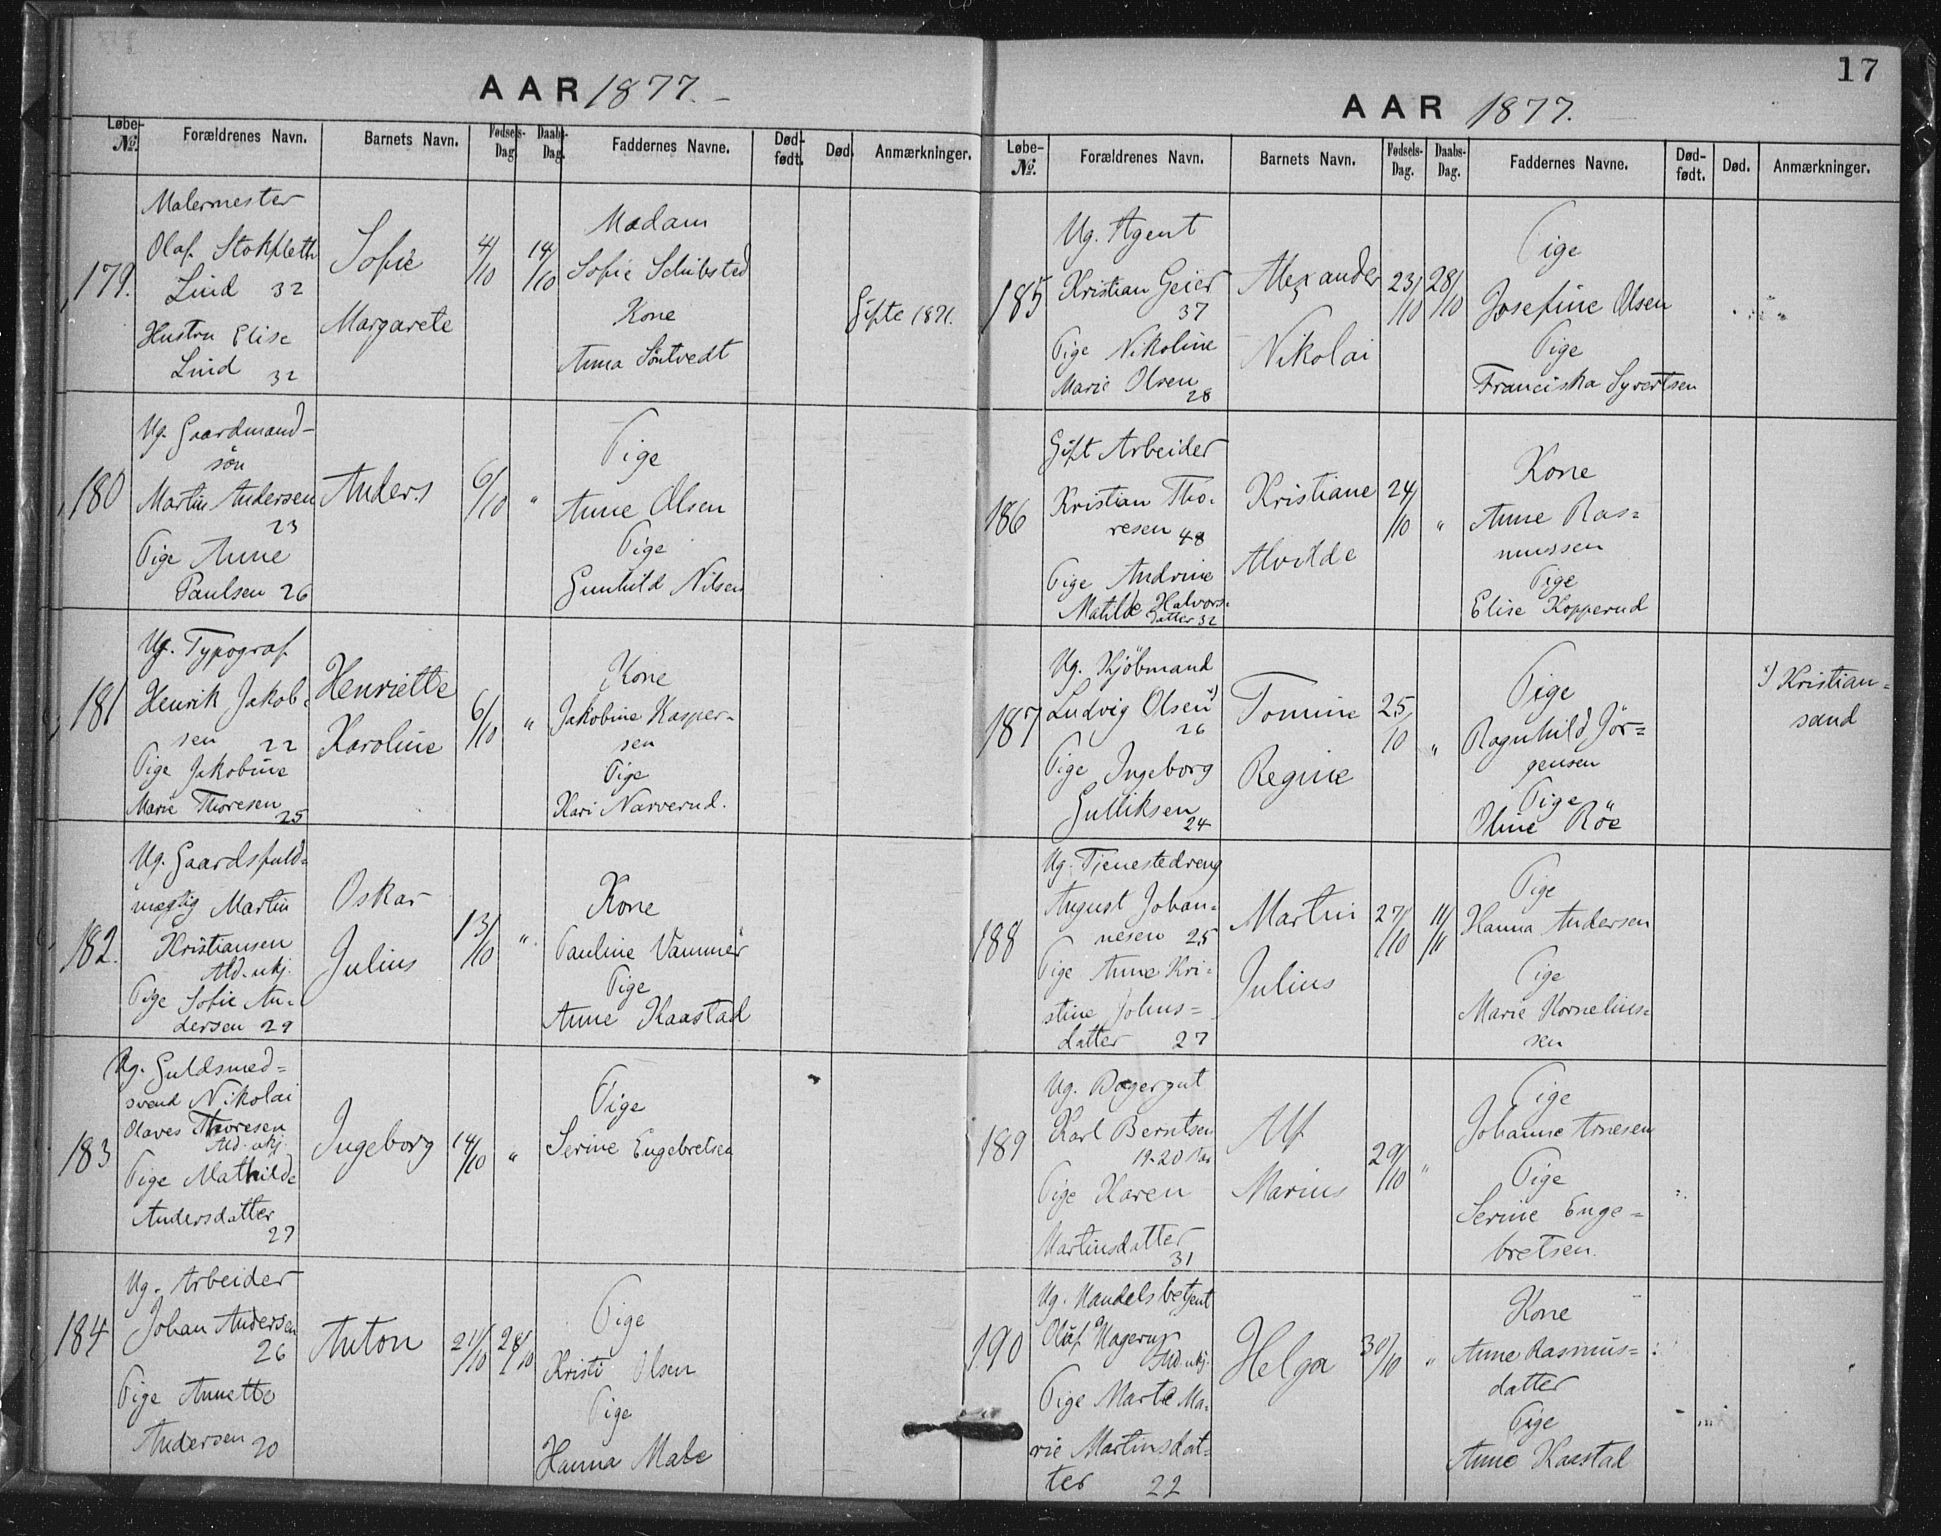 AAR 1877.
Løbe-No. Forældrenes Navn. Barnets Navn. Fødsels-Dag. Daabs-Dag. Faddernes Navne. Død-født. Død. Anmærkninger.
179.
Malermester
Olaf Stokfleth
Lind 32
Hustru Elise
Lind 32
Sofie
Margarete
4/10
14/10
Madam
Sofie Schibsted
Kone
Anna Söntvedt
Gifte 1871.
180
Ug. Gaardmand-
sön
Martin Andersen
23
Pige Anne
Paulsen 26
Anders
6/10
"
Pige
Anne Olsen
Pige
Gunhild Nilsen
181
Ug. Typograf
Henrik Jakob-
sen 22
Pige Jakobine
Marie Thoresen
25
Henriette
Karoline
6/10
"
Kone
Jakobine Kasper-
sen
Pige
Kari Narverud.
182.
Ug. Gaardsfuld-
mægtig Martin
Kristiansen
Ald. ukj.
Pige Sofie An-
dersen 29
Oskar
Julius
13/10
"
Kone
Pauline Vammer
Pige
Anne Kaastad
183
Ug. Guldsmed-
svend Nikolai
Olaves Thoresen
Ald. ukj.
Pige Mathilde
Andersdatter
27
Ingeborg
14/10
"
Pige
Serine Engebretsen
184
Ug. Arbeider
Johan Andersen
26
Pige Annette
Andersen 20
Anton
21/10
28/10
Pige
Kristi Olsen
Pige
Hanna Male
17
AAR 1877.
Løbe-No. Forældrenes Navn. Barnets Navn. Fødsels-Dag. Daabs-Dag. Faddernes Navne. Død-født. Død. Anmærkninger.
185
Ug. Agent
Kristian Geier
37
Pige Nikoline
Marie Olsen
28
Alexander
Nikolai
23/10
28/10
Pige
Josefine Olsen
Pige
Franciska Syvertsen
186
Gift Arbeider
Kristian Tho-
resen 48
Pige Andrine
Matilde Halvors-
datter 32
Kristiane
Alvilde
24/10
"
Kone
Anne Ras=
mussen
Pige
Elise Kopperud
187
Ug. Kjöbmand
Ludvig Olsen x)
26
Pige Ingeborg
Gulliksen
24
Tomine
Regine
25/10
"
Pige
Ragnhild Jör=
gensen
Pige
Oline Röe
x) Kristian=
sand
188
Ug. Tjenestedreng
August Johan-
nesen 25
Pige Anne Kri-
stine Johns=
datter 27
Martin
Julius
27/10
11/11
Pige
Hanna Andersen
Pige
Marie Kornelius-
sen
189
Ug. Bagergut
Karl Berntsen
19-20 Aar
Pige Karen
Martinsdatter
31
Alf
Marius
29/10
"
Pige
Johanne Arnesen
Pige
Serine Enge=
bretsen.
190
Ug. Handelsbetjent
Oluf Hagerup
Ald. ukj.
Pige Marte Ma-
rie Martinsdat=
ter 22
Helga
30/10
"
Kone
Anne Rasmus=
datter
Pige
Anne Kaastad